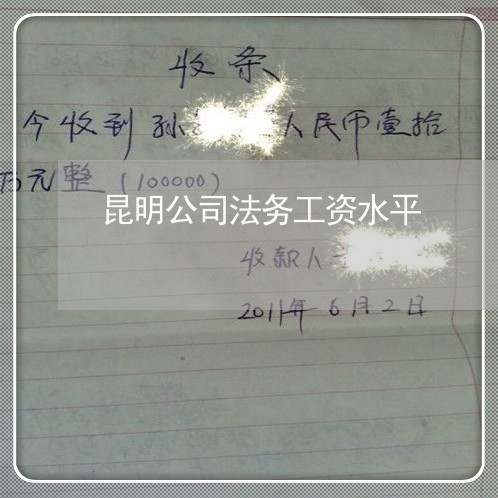 收条
今收到孙 人民币壹拾
万元整(100000)
昆明公司法务工资水平
收款人
2011年6月2日